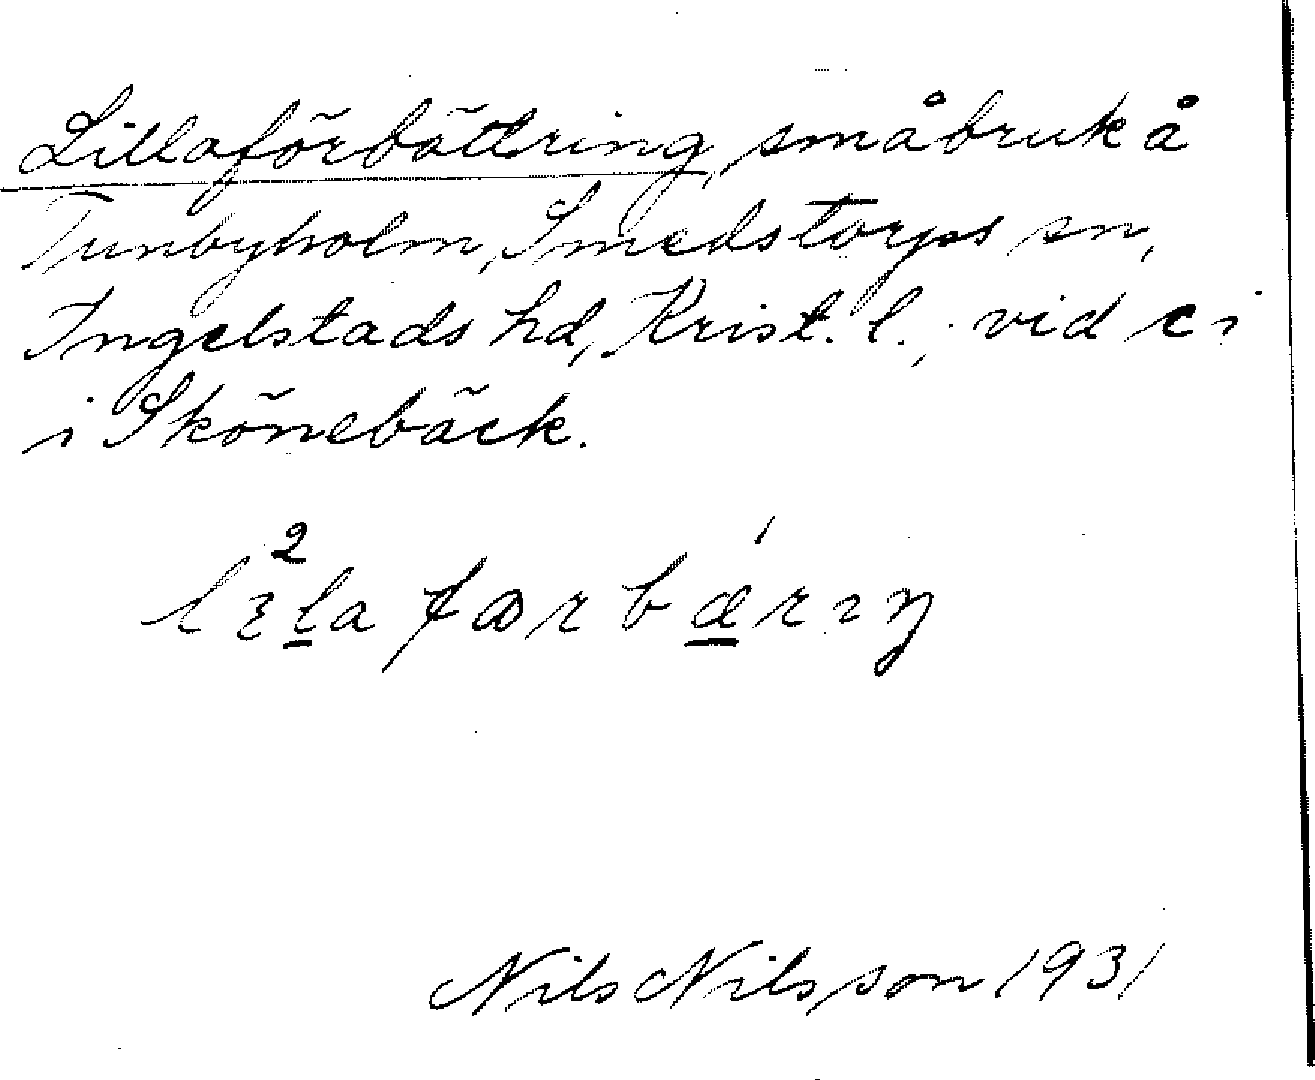 Lillaförbättring, småbruk å
Tunbyholm, Smedstorps sn,
Ingelstads hd, Krist. l., vid c i
i Skönebäck.
Nils Nilsson 1931